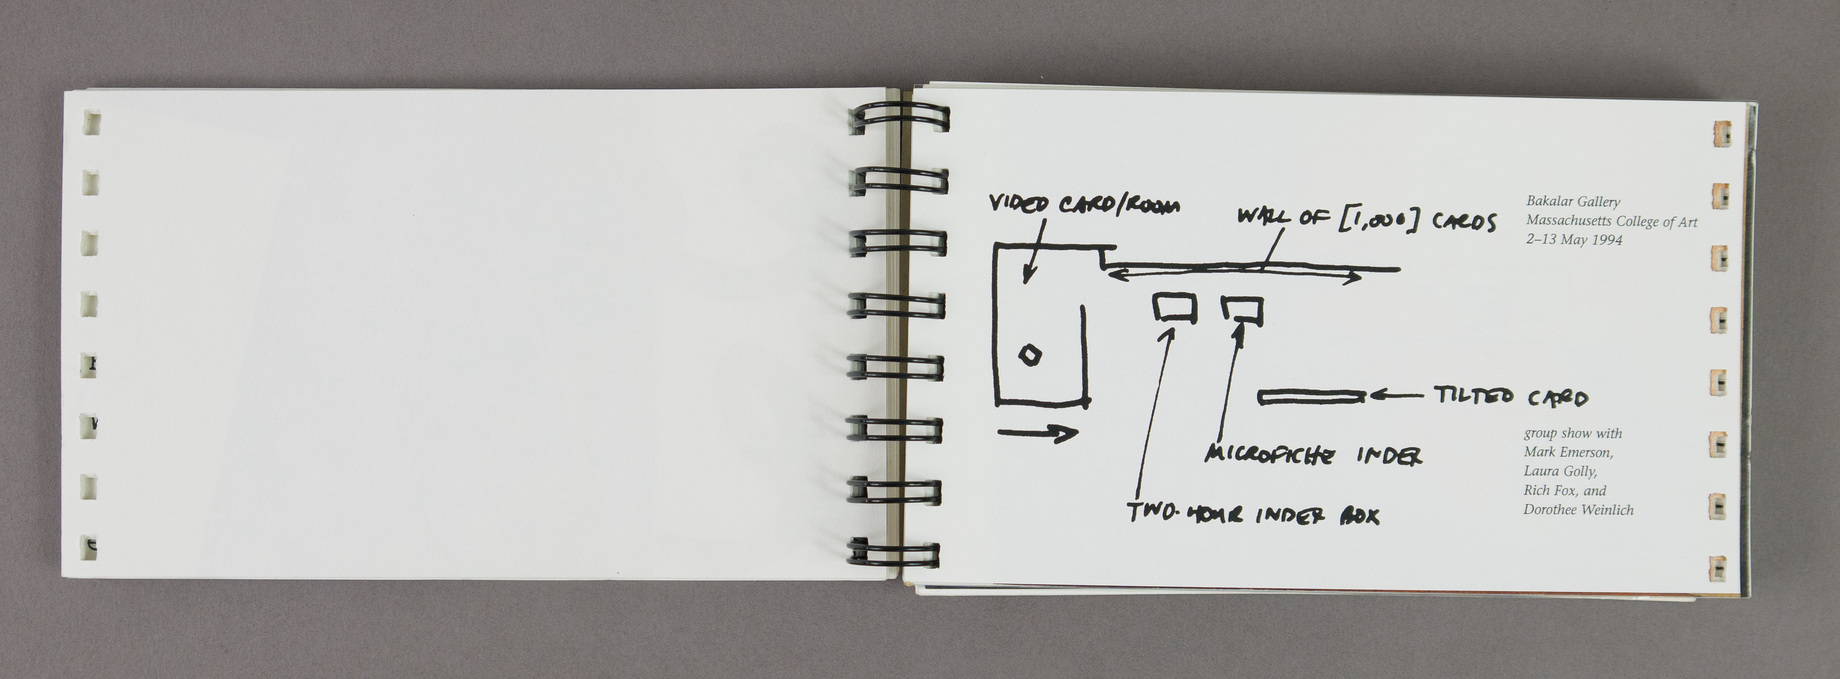 VIDEO CARD/ROOM
WALL OF [1,000] CARDS
Bakalar Gallery
Massachusetts College of Art
2–13 May 1994
TILTED CARD
MICROFICHE INDEX
TWO-HOUR INDEX BOX
group show with
Mark Emerson,
Laura Golly,
Rich Fox, and
Dorothee Weinlich